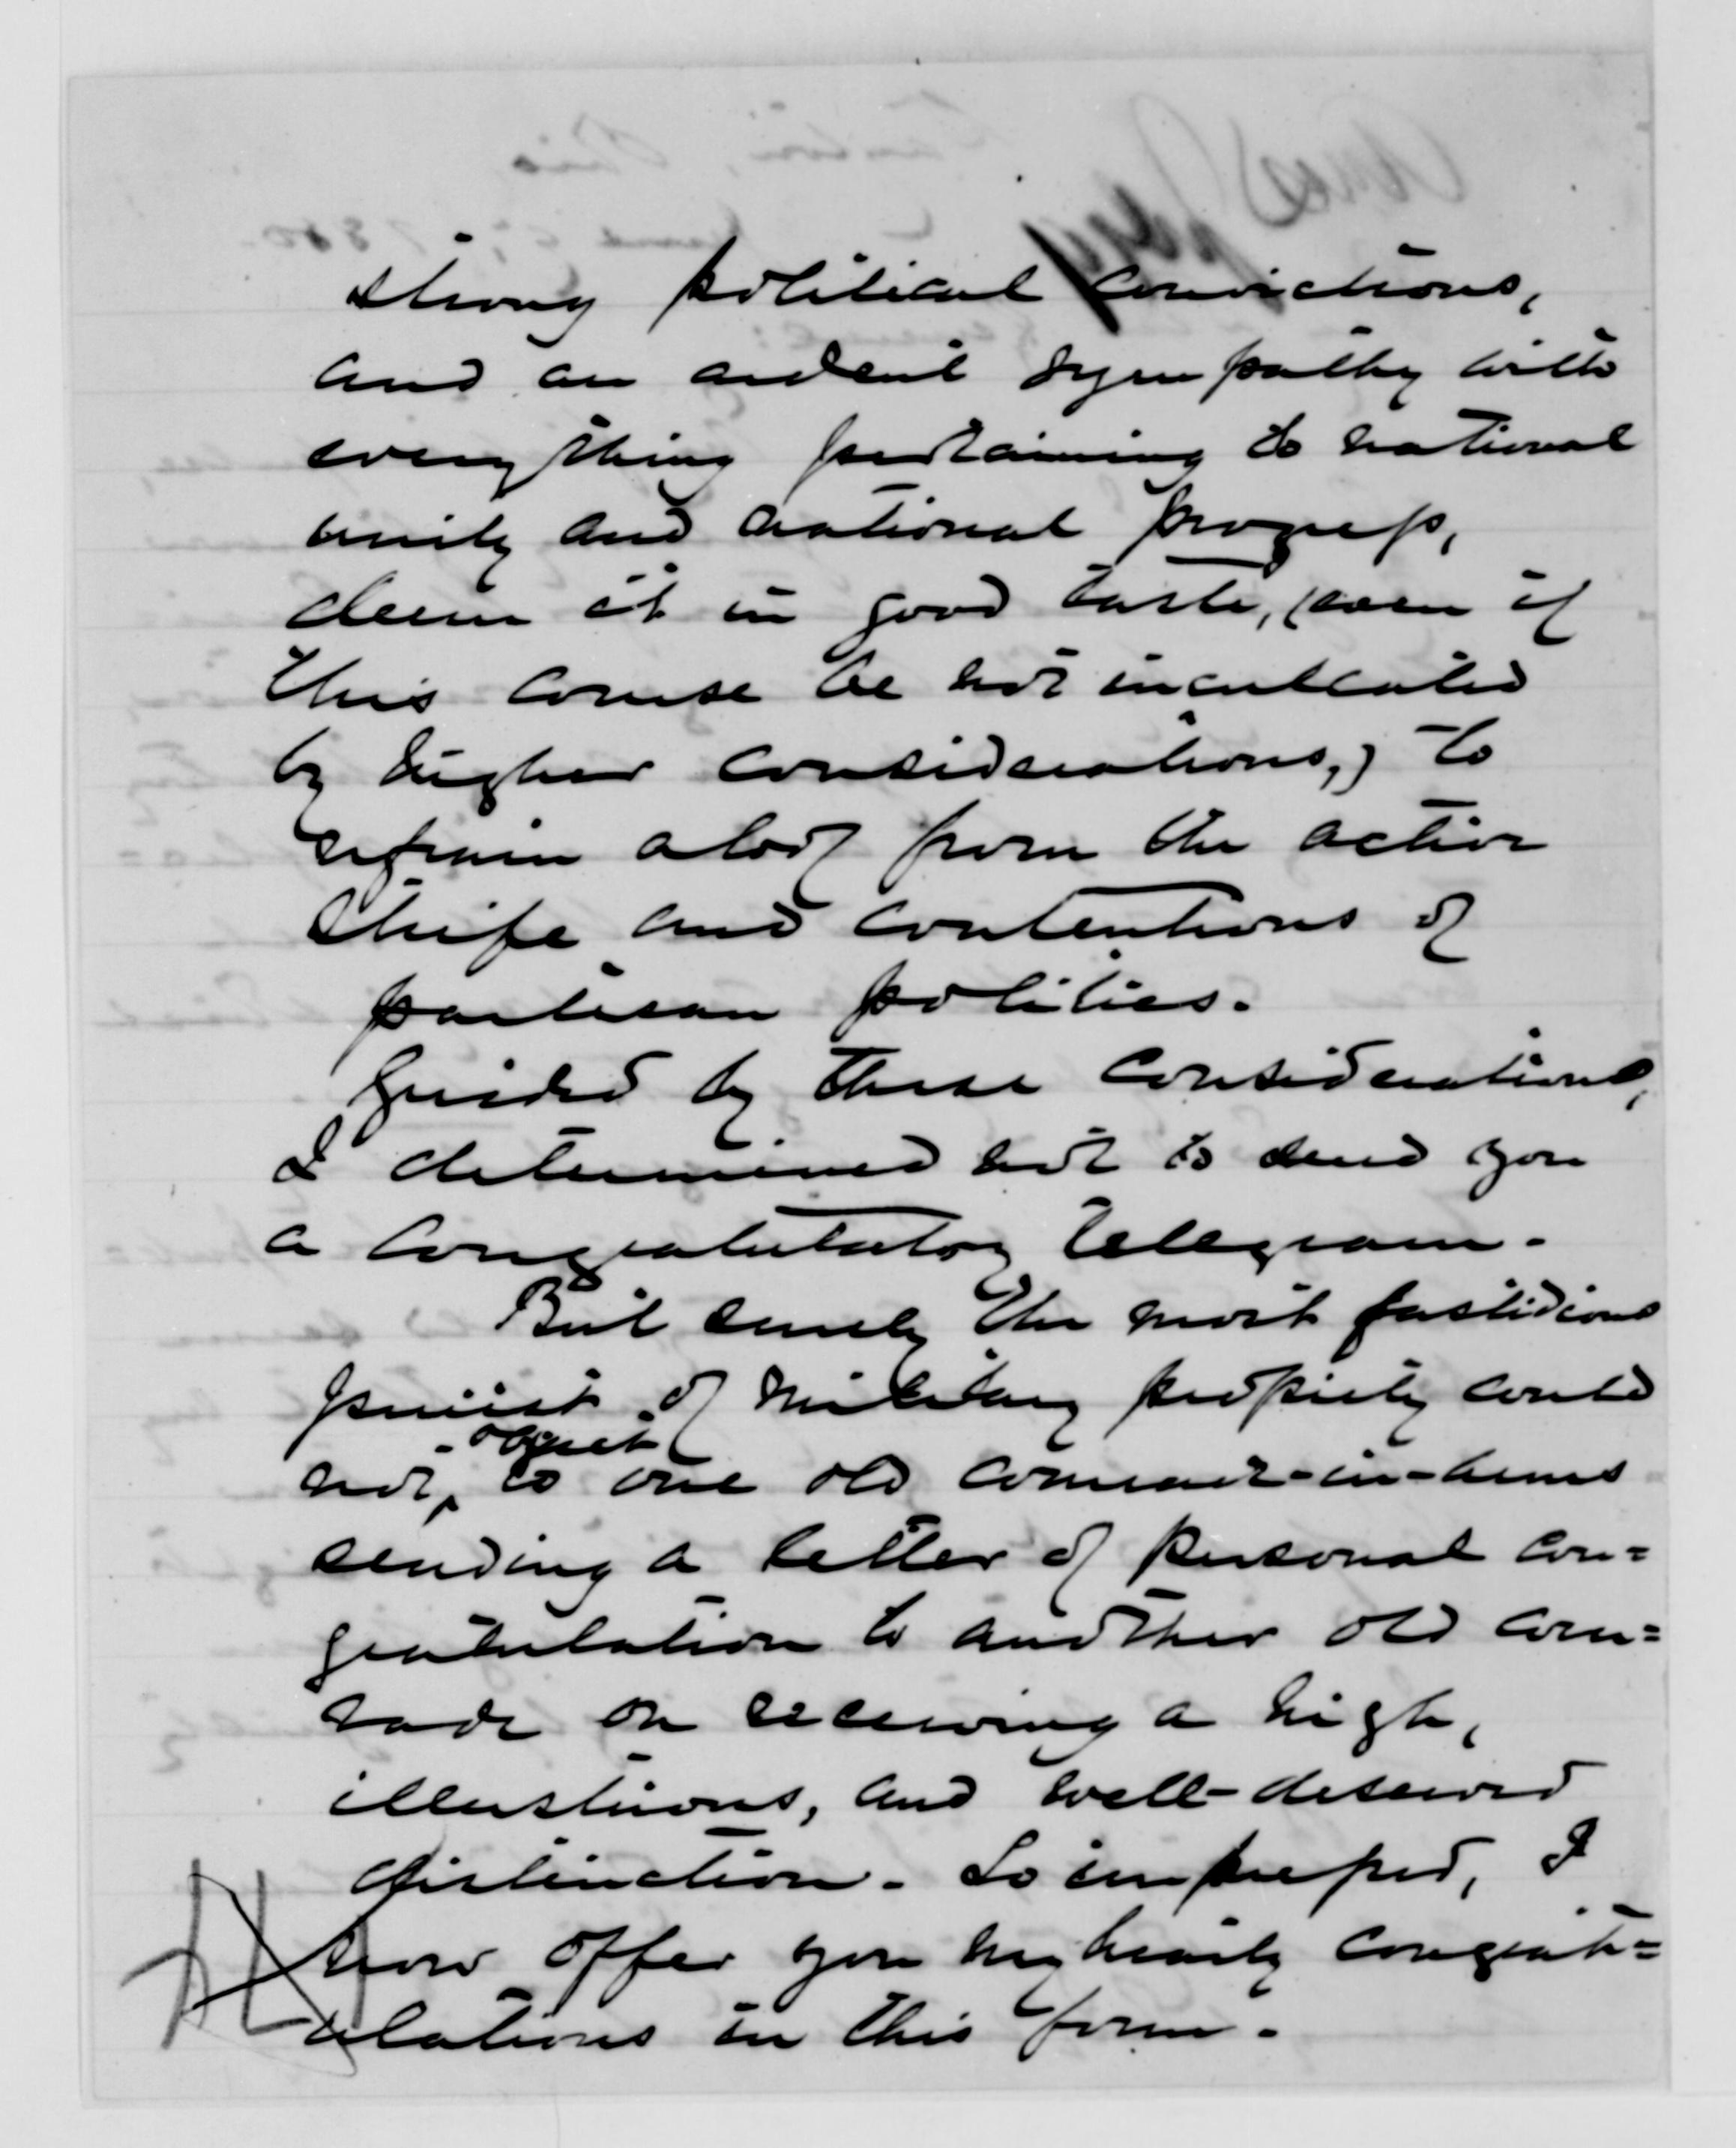 strong political convictions,
and an ardent sympathy with
everything pertaining to national
unity and national progress,
deem it in good taste, (even if
this course be not inculcated
by higher considerations,) to
refrain aloof from the active
strife and contentions of
partisan politics.
Guided by these considerations,
I determined not to send you
a congratulatory telegram.
But surely the most fastidious
purist of military propriety could
object
not, to one old comrade-in-arms
sending a letter of personal con=
gratulation to another old com=
rade on receiving a high,
illustrious, and well-deserved
distinction. So impressed, I
now offer you my hearty congrat=
ulations in this form.